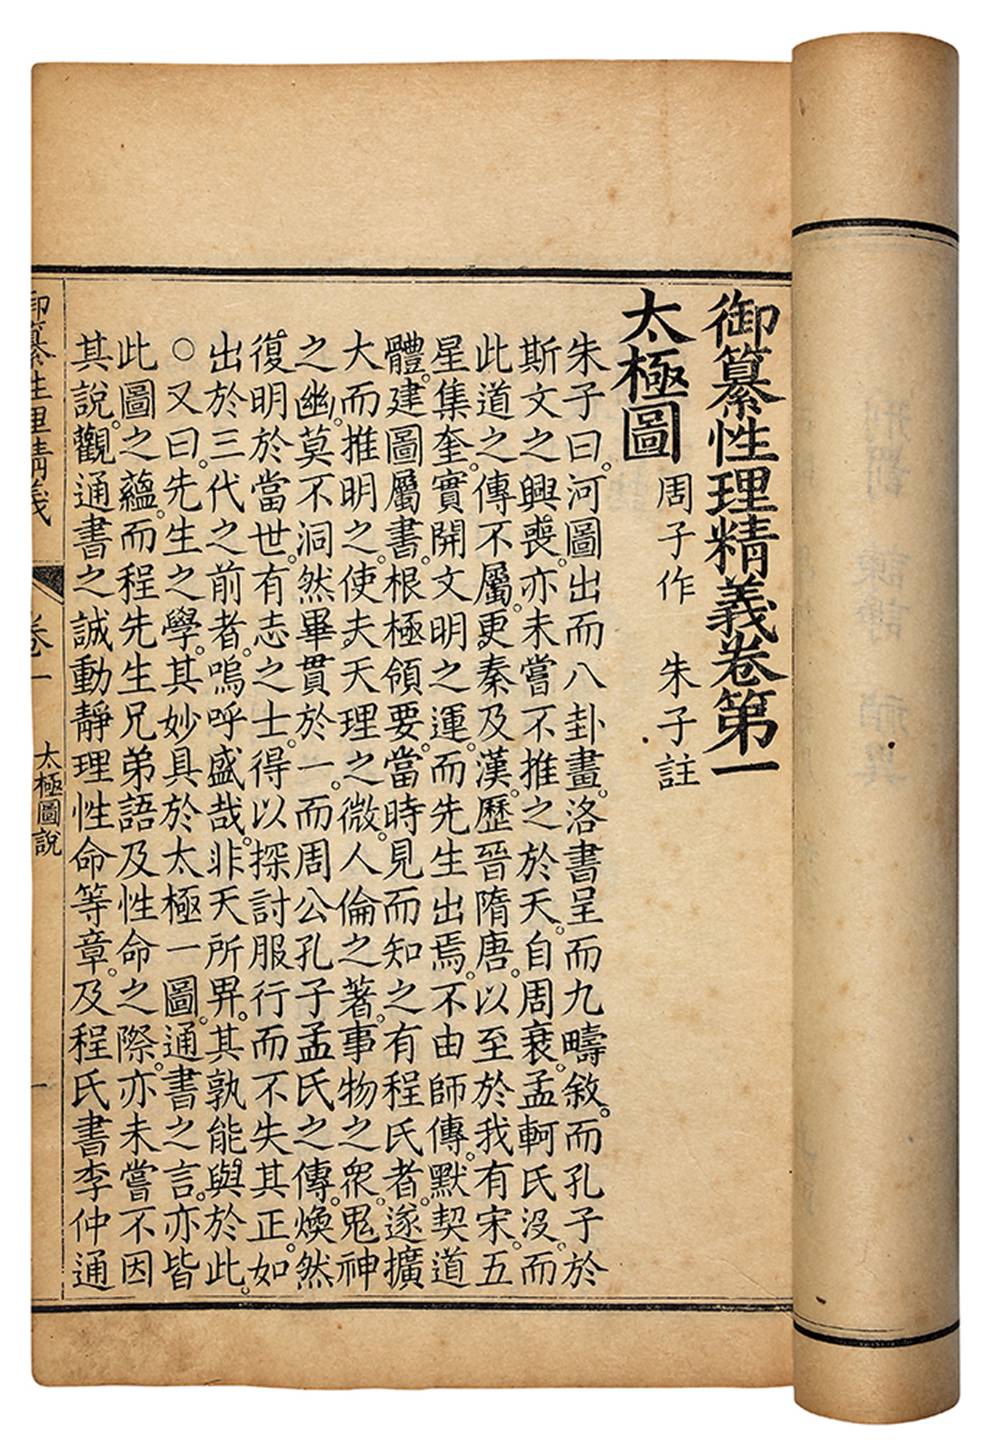 御纂性理精義卷第一
太極圖 周子作 朱子註
朱子曰。河圖出而八卦畫。洛書呈而九疇敘。而孔子於
斯文之興喪。亦未嘗不推之於天。自周衰。孟軻氏沒。而
此道之傳不屬。更秦及漢。歷晉隋唐。以至於我有宋。五
星集奎。實開文明之運。而先生出焉。不由師傳。默契道
體。建圖屬書。根極領要。當時見而知之有程氏者。遂擴
大而推明之。使夫天理之微。人倫之著。事物之衆。鬼神
之幽。莫不洞然畢貫於一。而周公孔子孟氏之傳。煥然
復明於當世。有志之士。得以探討服行而不失其正。如
出於三代之前者。嗚呼盛哉。非天所畀。其孰能與於此。
○又曰。先生之學。其妙具於太極一圖。通書之言。亦皆
此圖之蘊。而程先生兄弟語及性命之際。亦未嘗不因
其說。觀通書之誠動靜理性命等章。及程氏書李仲通
御纂性理精義 卷一 太極圖說 一